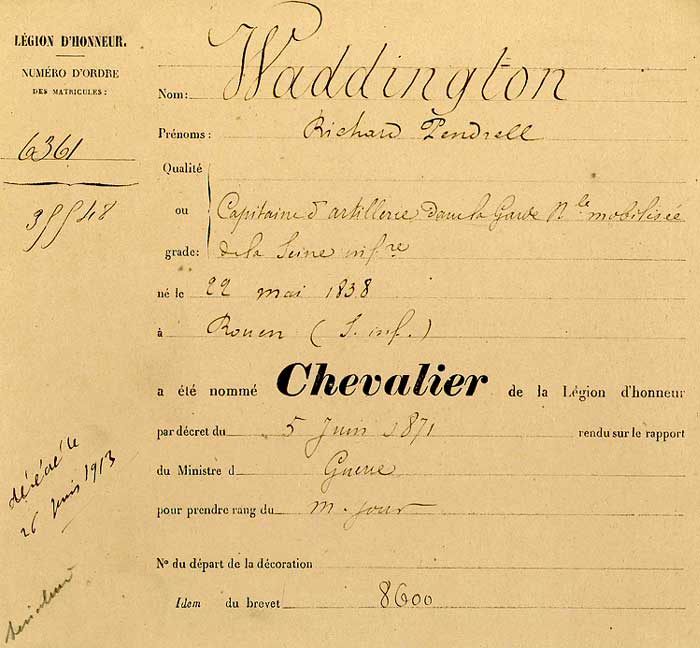 LÉGION D'HONNEUR.
NUMÉRO D'ORDRE
DES MATRICULES:
6361
35548
décédé le
26 Juin 1913
Nom: Waddington
Prénoms: Richard Pendrell
Qualité
ou Capitaine d'artillerie dans la Garde Nle mobilisée
grade: de la Seine infre
né le 22 mai 1838
à Rouen (S. inf.)
a été nommé Chevalier de la Légion d'honneur
par décret du 5 Juin 1871 rendu sur le rapport
du Ministre d Guerre
pour prendre rang du m. jour
No du départ de la décoration
Idem du brevet 8600